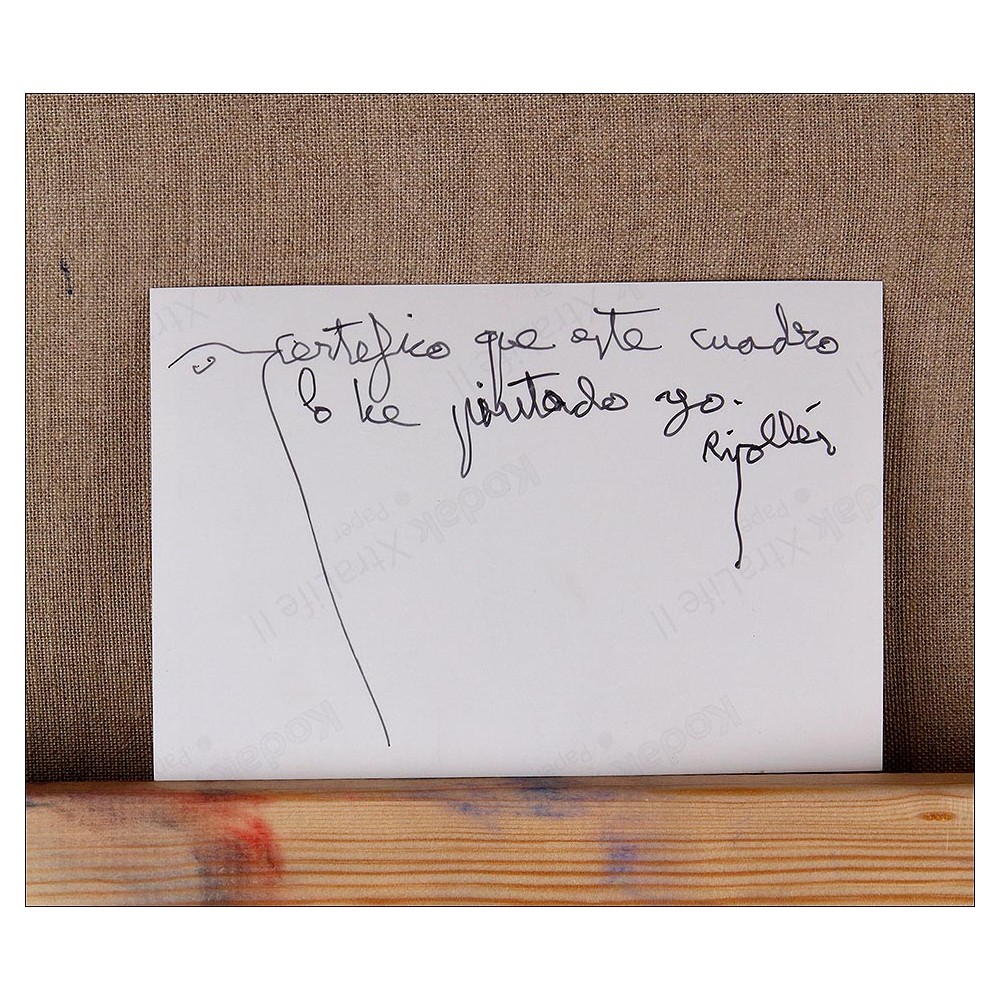 certefico que este cuadro
lo he pintado yo.
Ripollés
Kodak XtraLife II
Paper
Kodak XtraLife II
Paper
Kodak
Paper
Kodak